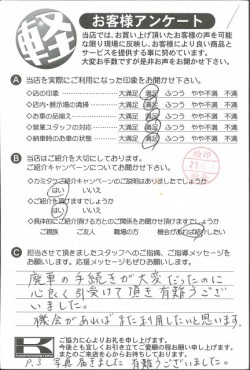 軽
お客様アンケート
当店では、お買い上げ頂いたお客様の声を可能
な限り現場に反映し、お客様により良い商品と
サービスを提供する事に努めています。
大変お手数ですが是非お声をお聞かせ下さい。
A 当店を実際にご利用になった印象をお聞かせ下さい。
◇店の印象 大満足 満足 ふつう やや不満 不満
◇店内・展示場の清掃 大満足 満足 ふつう やや不満 不満
◇お車の品揃え 大満足 満足 ふつう やや不満 不満
◇営業スタッフの対応 大満足 満足 ふつう やや不満 不満
◇納車時のお車の状態 大満足 満足 ふつう やや不満 不満
B 当店はご紹介を大切にしております。
ご紹介キャンペーンについてお聞かせ下さい。
◇カミタウンご紹介キャンペーンのご説明はありましたでしょうか
はい いいえ
◇ご紹介を頂けますでしょうか
はい いいえ
◇具体的にご紹介頂ける方とのご関係をお聞かせ頂けますでしょうか
ご親族 ご友人 職場の方 機会があれば紹介したい
C 担当させて頂きましたスタッフへのご指摘、ご指導メッセージを
お願いします。応援メッセージもぜひお願いします。
廃車の手続きが大変だったのに
心良く引受けて頂き有難うござ
いました。
機会があればまた利用したいと思います。
K ご協力に心よりお礼を申し上げます。
今後とも末永くお引き立てご愛顧の程お願い申し上げます。
またのご来店を心からお待ちしております。
P.S 写真届きました 有難うございました。